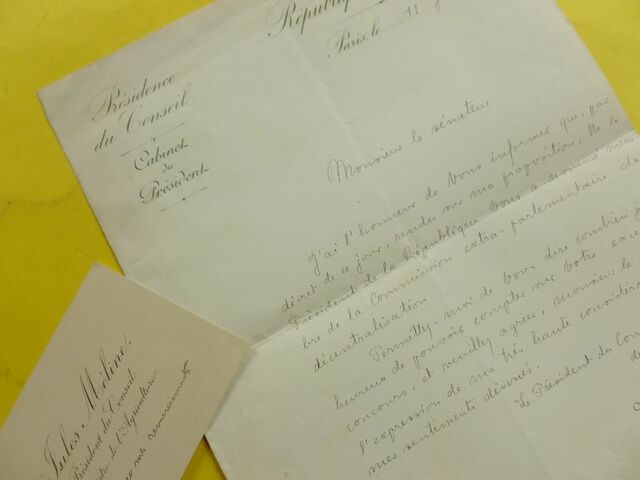 Républiq
Paris, le 11
Présidence
du Conseil
Cabinet
du
Président
Monsieur le sénateur
J'ai l'honneur de Vous informer que, par
décret de ce jour, rendu sur ma proposition, M. le
Président de la République Vous a nommé mem-
bre de la Commission extra-parlementaire de
décentralisation.
Permettez-moi de Vous dire combien je
heureux de pouvoir compter sur Votre exce
concours, et veuillez agréer, monsieur le
l'expression de ma très haute considéra
mes sentiments dévoués.
Le Président du Con
Jules Méline,
Président du Conseil
tre de l'Agriculture
mes remerciements